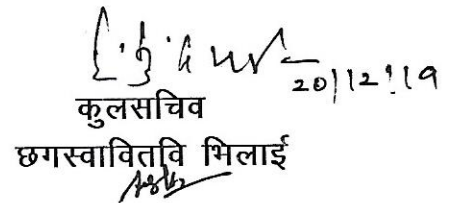 20/12/19
कुलसचिव
छगस्वावितवि भिलाई